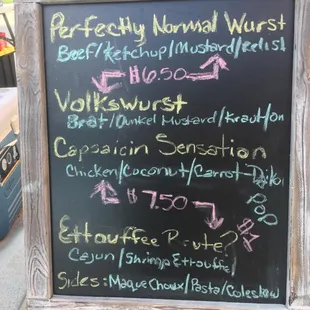 Perfectly Normal Wurst
Beef/Ketchup/Mustard/relish
$6.50
Volkswurst
Brat/Dunkel Mustard/Kraut/On
Capsaicin Sensation
Chicken/Coconut/Carrot-
$7.50
Ettouffee Route?
Cajun/Shrimp Ettouffe/
Sides: Maque Choux/Pasta/Coleslaw